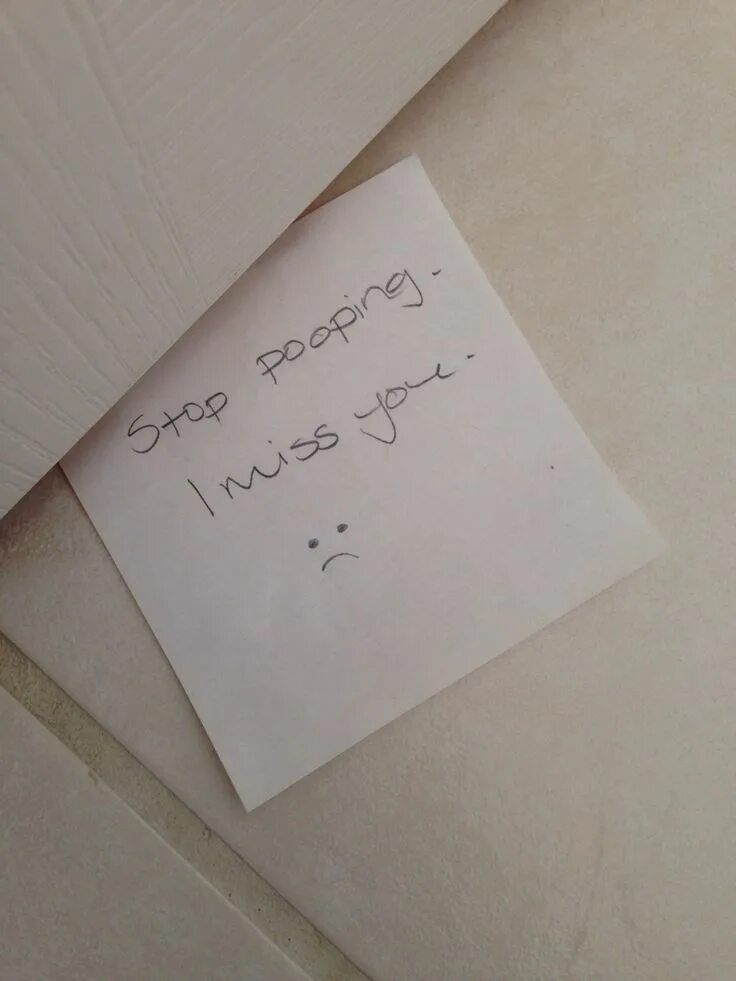 Stop pooping.
I miss you.
:(